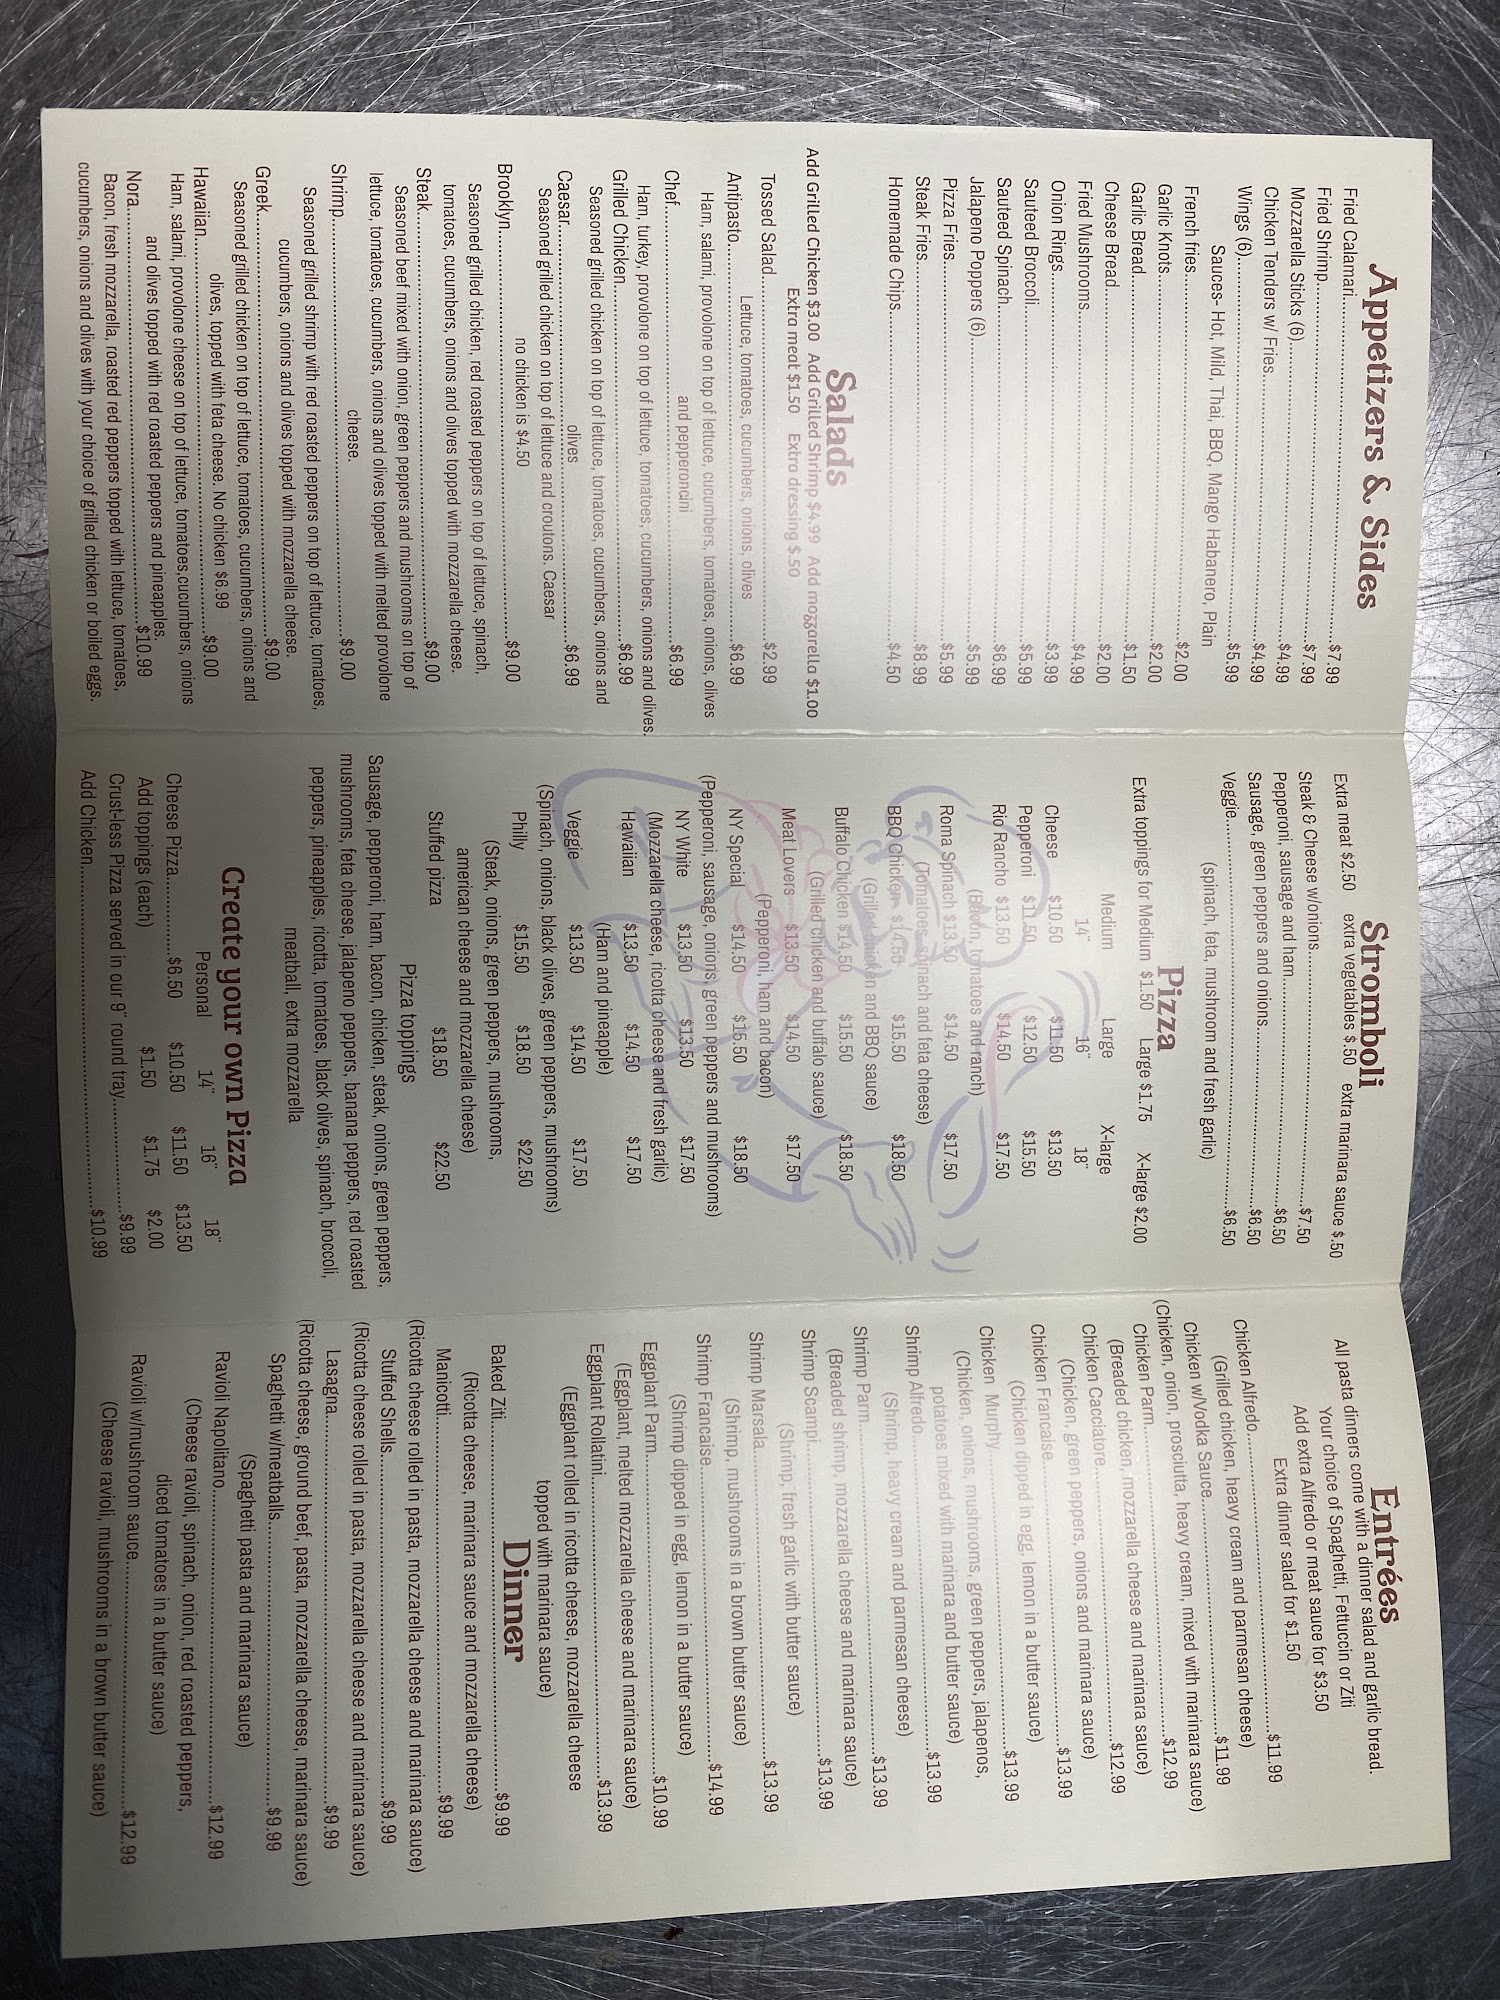 Appetizers & Sides
Fried Calamari....$7.99
Fried Shrimp....$7.99
Mozzarella Sticks (6)....$4.99
Chicken Tenders w/ Fries....$4.99
Wings (6)....$5.99
Sauces- Hot, Mild, Thai, BBQ, Mango Habanero, Plain
French fries....$2.00
Garlic Knots....$2.00
Garlic Bread....$1.50
Cheese Bread....$2.00
Fried Mushrooms....$4.99
Onion Rings....$3.99
Sauteed Broccoli....$5.99
Sauteed Spinach....$6.99
Jalapeno Poppers (6)....$5.99
Pizza Fries....$5.99
Steak Fries....$8.99
Homemade Chips....$4.50
Salads
Add Grilled Chicken $3.00 Add Grilled Shrimp $4.99 Add mozzarella $1.00
Extra meat $1.50 Extra dressing $.50
Tossed Salad....$2.99
Lettuce, tomatoes, cucumbers, onions, olives
Antipasto....$6.99
Ham, salami, provolone on top of lettuce, cucumbers, tomatoes, onions, olives
and pepperoncini
Chef....$6.99
Ham, turkey, provolone on top of lettuce, tomatoes, cucumbers, onions and olives.
Grilled Chicken....$6.99
Seasoned grilled chicken on top of lettuce, tomatoes, cucumbers, onions and
olives
Caesar....$6.99
Seasoned grilled chicken on top of lettuce and croutons. Caesar
no chicken is $4.50
Brooklyn....$9.00
Seasoned grilled chicken, red roasted peppers on top of lettuce, spinach,
tomatoes, cucumbers, onions and olives topped with mozzarella cheese.
Steak....$9.00
Seasoned beef mixed with onion, green peppers and mushrooms on top of
lettuce, tomatoes, cucumbers, onions and olives topped with melted provolone
cheese.
Shrimp....$9.00
Seasoned grilled shrimp with red roasted peppers on top of lettuce, tomatoes,
cucumbers, onions and olives topped with mozzarella cheese.
Greek....$9.00
Seasoned grilled chicken on top of lettuce, tomatoes, cucumbers, onions and
olives, topped with feta cheese. No chicken $6.99
Hawaiian....$9.00
Ham, salami, provolone cheese on top of lettuce, tomatoes,cucumbers, onions
and olives topped with red roasted peppers and pineapples.
Nora....$10.99
Bacon, fresh mozzarella, roasted red peppers topped with lettuce, tomatoes,
cucumbers, onions and olives with your choice of grilled chicken or boiled eggs.
Stromboli
Extra meat $2.50 extra vegetables $.50 extra marinara sauce $.50
Steak & Cheese w/onions....$7.50
Pepperoni, sausage and ham....$6.50
Sausage, green peppers and onions....$6.50
Veggie....$6.50
(spinach, feta, mushroom and fresh garlic)
Pizza
Extra toppings for Medium $1.50 Large $1.75 X-large $2.00
Medium Large X-large
14" 16" 18"
Cheese $10.50 $11.50 $13.50
Pepperoni $11.50 $12.50 $15.50
Rio Rancho $13.50 $14.50 $17.50
(Bacon, tomatoes and ranch)
Roma Spinach $13.50 $14.50 $17.50
(Tomatoes, spinach and feta cheese)
BBQ Chicken $14.50 $15.50 $18.50
(Grilled chicken and BBQ sauce)
Buffalo Chicken $14.50 $15.50 $18.50
(Grilled chicken and buffalo sauce)
Meat Lovers $13.50 $14.50 $17.50
(Pepperoni, ham and bacon)
NY Special $14.50 $15.50 $18.50
(Pepperoni, sausage, onions, green peppers and mushrooms)
NY White $13.50 $13.50 $17.50
(Mozzarella cheese, ricotta cheese and fresh garlic)
Hawaiian $13.50 $14.50 $17.50
(Ham and pineapple)
Veggie $13.50 $14.50 $17.50
(Spinach, onions, black olives, green peppers, mushrooms)
Philly $15.50 $18.50 $22.50
(Steak, onions, green peppers, mushrooms,
american cheese and mozzarella cheese)
Stuffed pizza $18.50 $22.50
Pizza toppings
Sausage, pepperoni, ham, bacon, chicken, steak, onions, green peppers,
mushrooms, feta cheese, jalapeno peppers, banana peppers, red roasted
peppers, pineapples, ricotta, tomatoes, black olives, spinach, broccoli,
meatball, extra mozzarella
Create your own Pizza
Personal 14" 16" 18"
Cheese Pizza....$6.50 $10.50 $11.50 $13.50
Add toppings (each) $1.50 $1.75 $2.00
Crust-less Pizza served in our 9" round tray....$9.99
Add Chicken....$10.99
Entrées
All pasta dinners come with a dinner salad and garlic bread.
Your choice of Spaghetti, Fettuccin or Ziti
Add extra Alfredo or meat sauce for $3.50
Extra dinner salad for $1.50
Chicken Alfredo....$11.99
(Grilled chicken, heavy cream and parmesan cheese)
Chicken w/Vodka Sauce....$11.99
(Chicken, onion, prosciutta, heavy cream, mixed with marinara sauce)
Chicken Parm....$12.99
(Breaded chicken, mozzarella cheese and marinara sauce)
Chicken Cacciatore....$12.99
(Chicken, green peppers, onions and marinara sauce)
Chicken Francaise....$13.99
(Chicken dipped in egg, lemon in a butter sauce)
Chicken Murphy....$13.99
(Chicken, onions, mushrooms, green peppers, jalapenos,
potatoes mixed with marinara and butter sauce)
Shrimp Alfredo....$13.99
(Shrimp, heavy cream and parmesan cheese)
Shrimp Parm....$13.99
(Breaded shrimp, mozzarella cheese and marinara sauce)
Shrimp Scampi....$13.99
(Shrimp, fresh garlic with butter sauce)
Shrimp Marsala....$13.99
(Shrimp, mushrooms in a brown butter sauce)
Shrimp Francaise....$14.99
(Shrimp dipped in egg, lemon in a butter sauce)
Eggplant Parm....$10.99
(Eggplant, melted mozzarella cheese and marinara sauce)
Eggplant Rollatini....$13.99
(Eggplant rolled in ricotta cheese, mozzarella cheese
topped with marinara sauce)
Dinner
Baked Ziti....$9.99
(Ricotta cheese, marinara sauce and mozzarella cheese)
Manicotti....$9.99
(Ricotta cheese rolled in pasta, mozzarella cheese and marinara sauce)
Stuffed Shells....$9.99
(Ricotta cheese rolled in pasta, mozzarella cheese and marinara sauce)
Lasagna....$9.99
(Ricotta cheese, ground beef, pasta, mozzarella cheese, marinara sauce)
Spaghetti w/meatballs....$9.99
(Spaghetti pasta and marinara sauce)
Ravioli Napolitano....$12.99
(Cheese ravioli, spinach, onion, red roasted peppers,
diced tomatoes in a butter sauce)
Ravioli w/mushroom sauce....$12.99
(Cheese ravioli, mushrooms in a brown butter sauce)